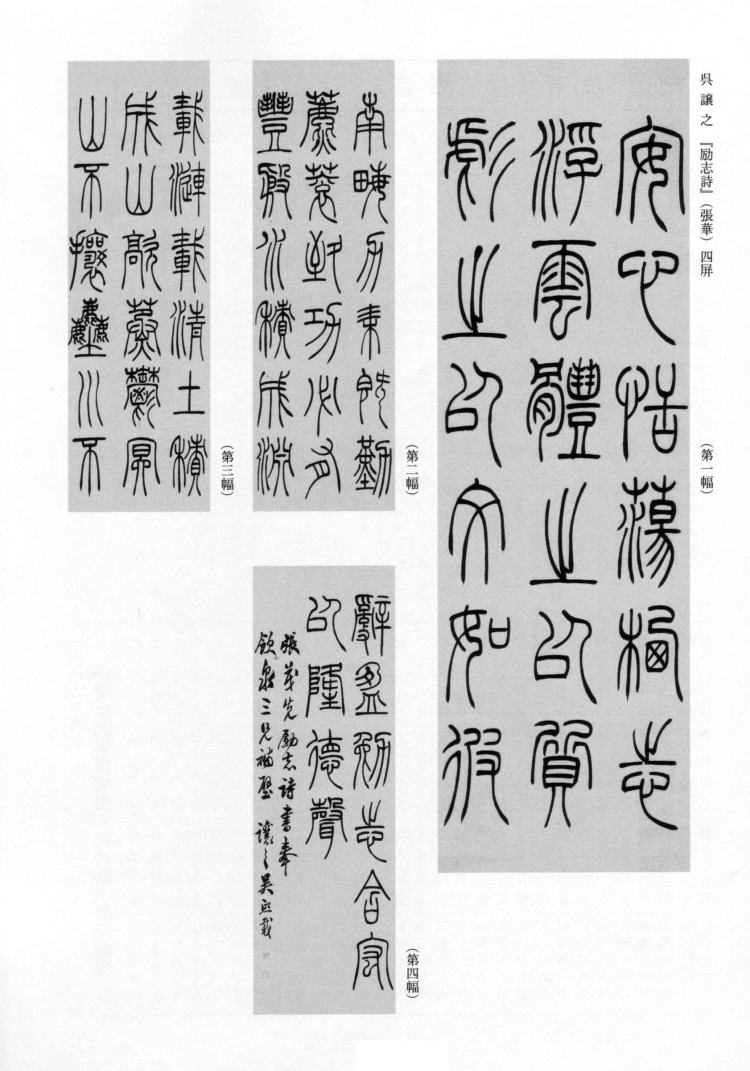 呉讓之『励志詩』（張華）四屏
（第一幅）
安心恬蕩棲志
浮雲體之以質
彪之以文如彼
（第二幅）
南畮力耒既勤
藨蓘致功必有
豐殷水積成淵
（第三幅）
載漣載清土積
成山歊蒸鬱冥
山不攘塵川不
（第四幅）
辭盈勉志含宖
以隆德聲
張茂先勵志詩書奉
欽泉三兄補壁 讓之吳熙載